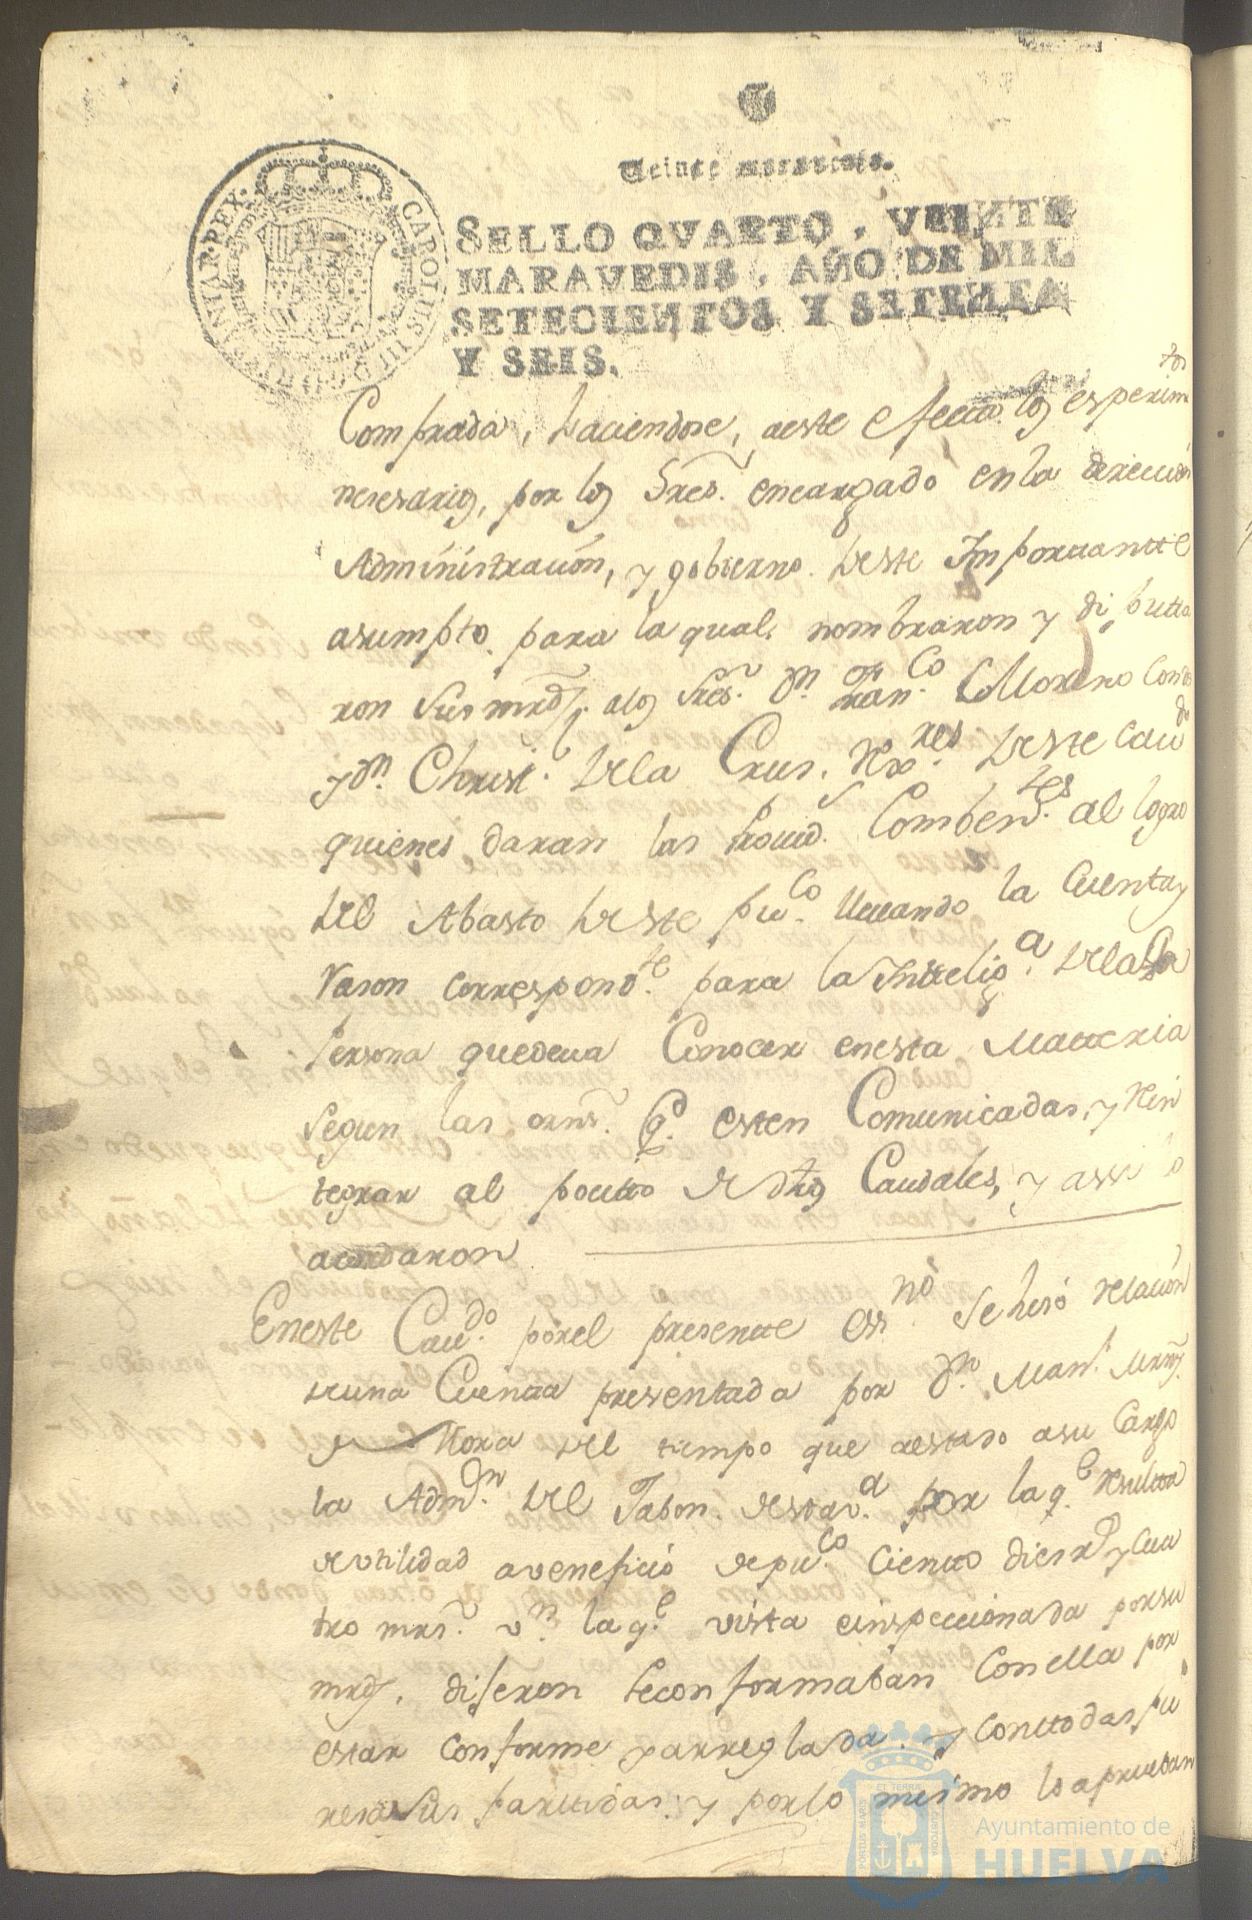 Veinte maravedis.
SELLO QVARTO, VEINTE
MARAVEDIS, AÑO DE MIL
SETECIENTOS Y SETENTA
Y SEIS.
CAROLUS III D G HISPANIAR REX
Comprada, haciendose, aeste efecto los experimtos
nesesarios, por los Sres. encargado en la direccion
Administracion, y gobierno deste Importante
asumpto. para la qual, nombraron y diputta
ron Sus mrds. alos Sres. Dn. Franco. Moreno Conde
y Dn. Christ. dela Crus, Rexres. deste Cavdo
quienes daran las Provid. Combentes. al logro
del Abasto deste puco. llevando la Cuenta y
Rason correspondte. para la Inteliga. dela
Persona quedeva Conocer enesta Matteria
segun las orns. qe. esten Comunicadas, y Rein
tegrar al pocitto de dhos Caudales, y assi lo
acordaron
Eneste Cavdo. porel presentte essno. Se hiso relacion
deuna Cuenta presentada por Dn. Manl. Mrnz.
y Mora del tiempo que aestado asu Cargo
la Admon. del Jabon. destava. por la qe. resulta
de utilidad avenefició depuco. Ciento dies rs. y cua
tro mrs. vn. la qe. vista einspeccionada porsu
mrds. dijeron seconformaban Con ella por
estar conforme y arreglada. y conttodas pu
resasus parttidas: y por lo mismo lo aprueban
Ayuntamiento de
HUELVA